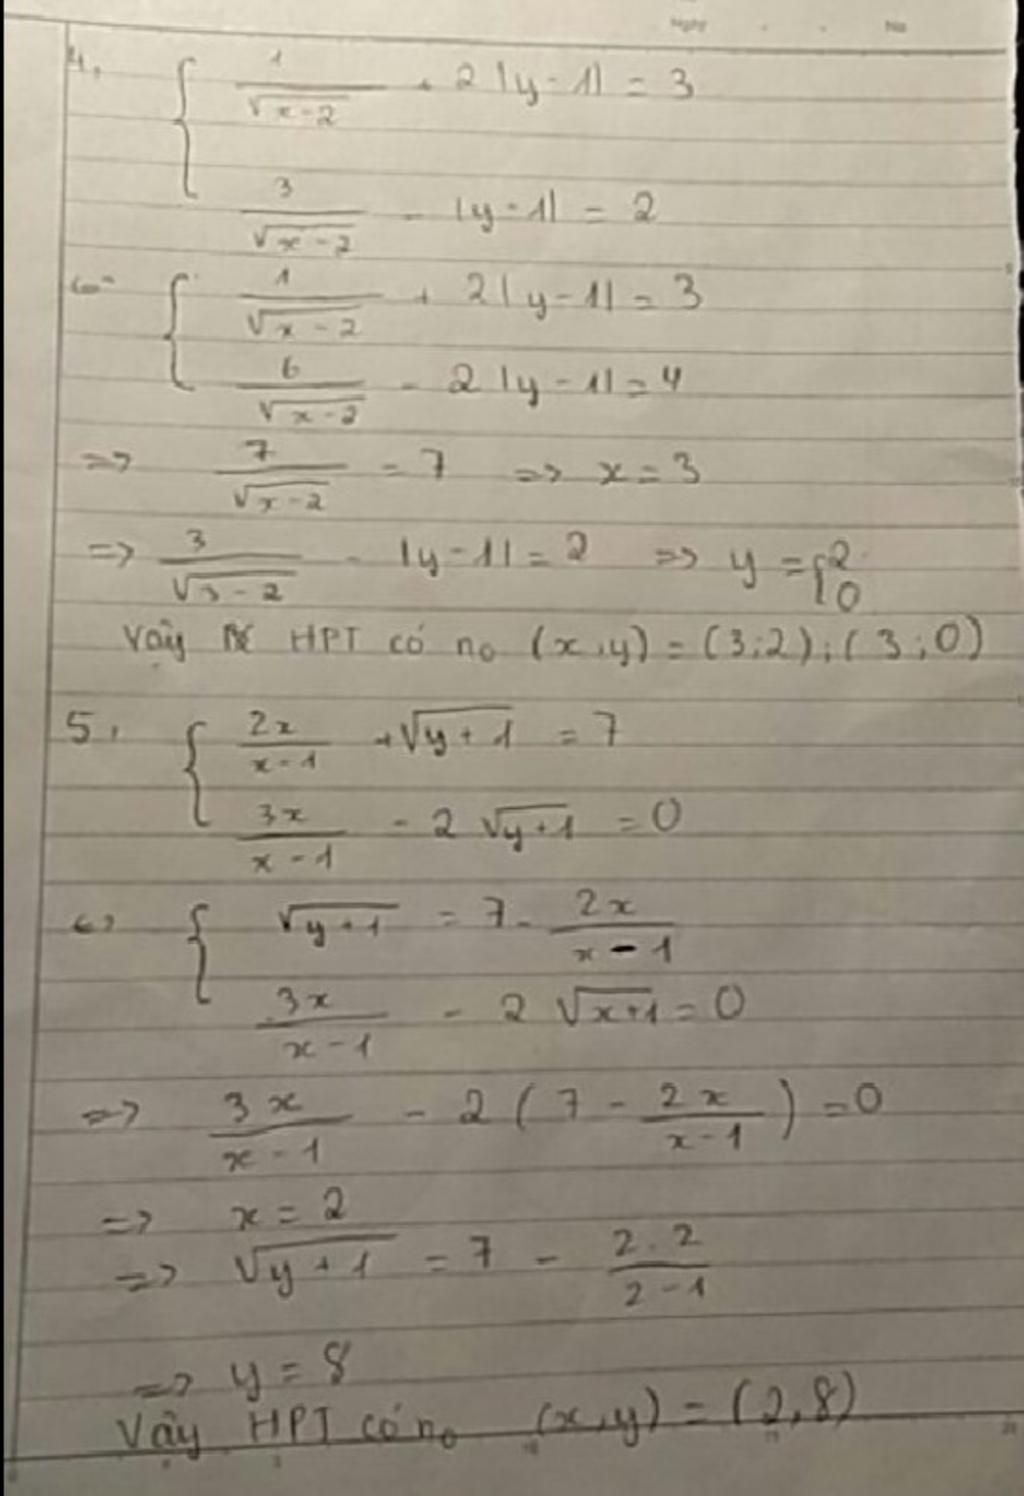 Ngày No
4, { 1/√(x-2) + 2|y-1| = 3
3/√(x-2) - |y-1| = 2
<=> { 1/√(x-2) + 2|y-1| = 3
6/√(x-2) - 2|y-1| = 4
=> 7/√(x-2) = 7 => x = 3
=> 3/√(3-2) - |y-1| = 2 => y = [2 0
Vậy HPT có no (x,y) = (3;2);(3;0)
5, { 2x/(x-1) + √(y+1) = 7
3x/(x-1) - 2√(y+1) = 0
<=> { √(y+1) = 7 - 2x/(x-1)
3x/(x-1) - 2√(x+1) = 0
=> 3x/(x-1) - 2(7 - 2x/(x-1)) = 0
=> x = 2
=> √(y+1) = 7 - 2.2/(2-1)
=> y = 8
Vậy HPT có no (x,y) = (2,8)